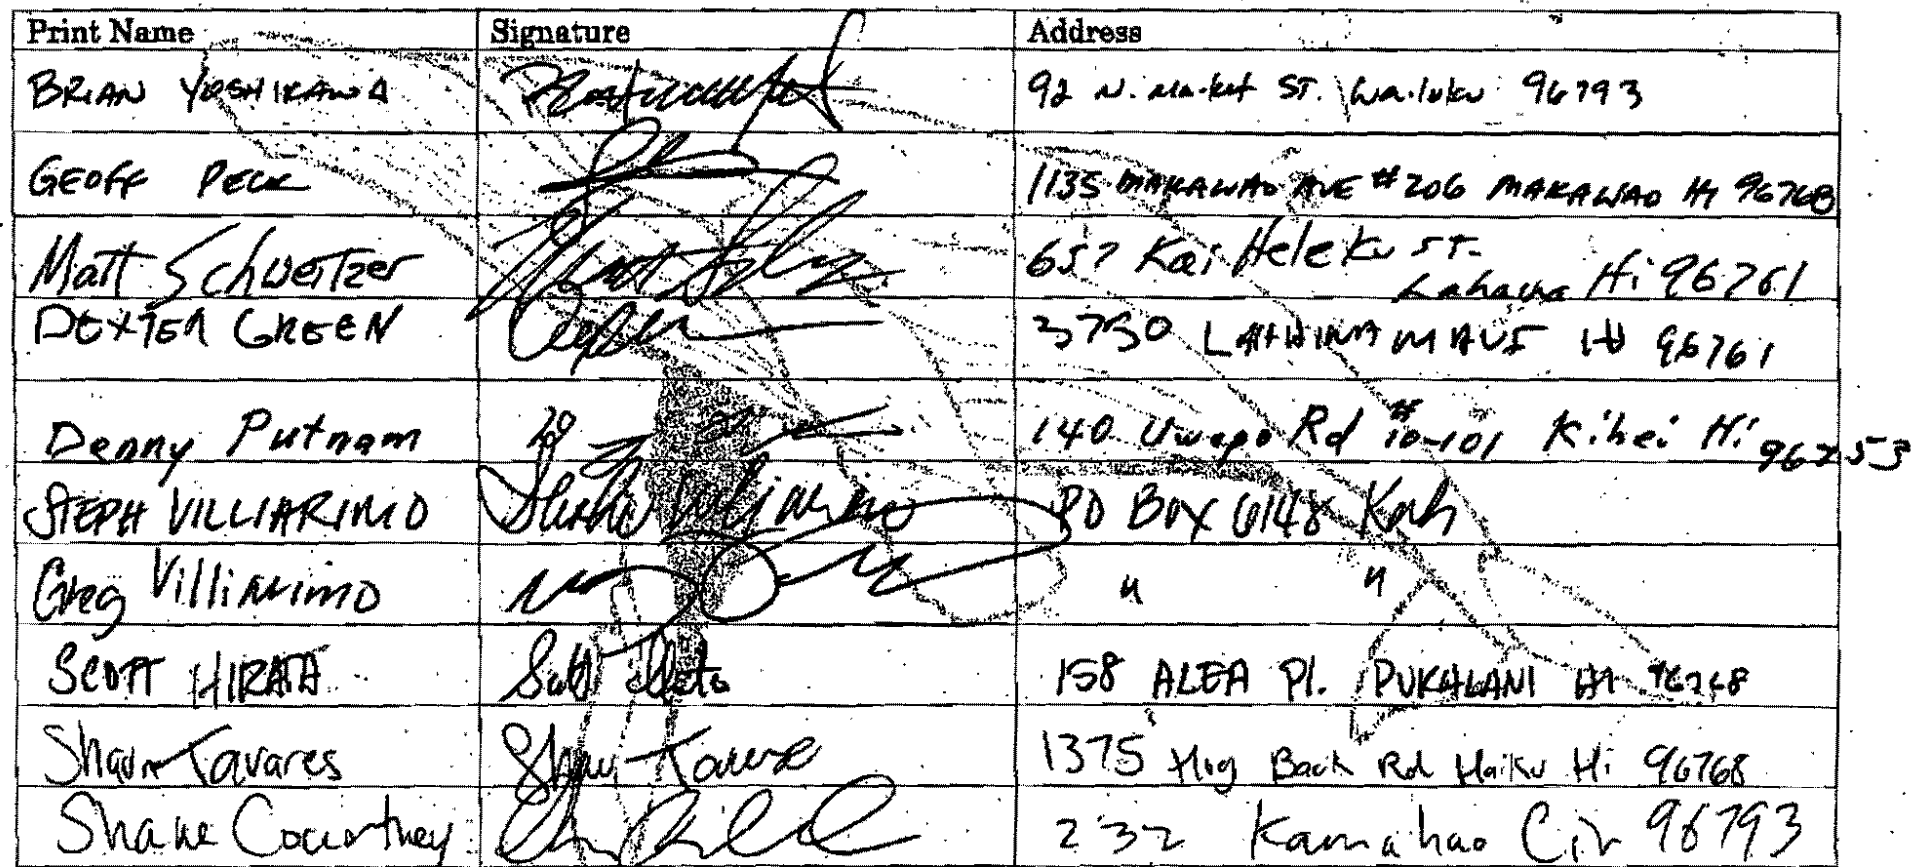 Print Name Signature Address
BRIAN YOSHIKAWA 92 N. Market ST. Wailuku 96793
GEOFF PECK 1135 MAKAWAO AVE #206 MAKAWAO HI 96768
Matt Schweitzer 657 Kai Heleku ST.
Lahaina Hi 96761
DEXTER GREEN 3730 MAUI HI 96761
Denny Putnam 140 Uwapo Rd # 10-101 Kihei Hi 96753
STEPH VILLIARIMO PO BOX 6148 Kah
Greg Villiarimo " "
SCOTT HIRATA 158 ALEA Pl. PUKALANI HI 96768
Tavares 1375 Hog Back Rd Haiku Hi 96768
Shane Courtney 232 Kamahao Cir 96793